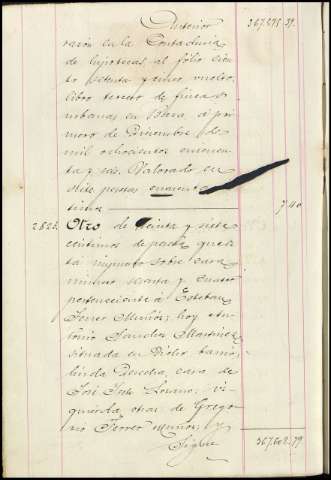 Anterior 367.275.39.
razón en la Contaduría
de hipotecas, al folio cien
to setenta y cinco vuelto,
libro tercero de fincas
urbanas en Baza, á pri
mero de Diciembre de
mil ochocientos cincuen
ta y seis. Valorado en
siete pesetas cuarenta
7'40
2.823. Otro de treinta y siete
céntimos de peseta que es
tá impuesto sobre casa
número sesenta y cuatro
perteneciente á Esteban
Ferrer Muñoz; hoy An
tonio Sanchez Martinez
situada en
linda Derecha, casa de
José Lozano; iz
quierda otra de Grego
rio Ferrer Muñoz; y
Sigue 367.602.79